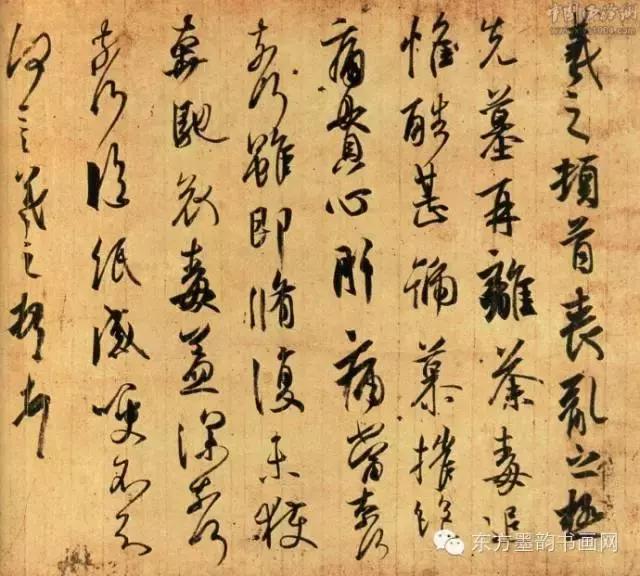 羲之頓首喪亂之極
先墓再離荼毒追
惟酷甚號慕摧絕
痛貫心肝痛當奈何
奈何雖即脩復未獲
奔馳哀毒益深奈何
奈何臨紙感哽不知
何言羲之頓首頓首
东方墨韵书画网